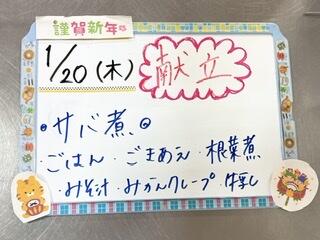 謹賀新年
1/20(木)
献立
サバ煮
・ごはん・ごまあえ・根菜煮
・みそ汁・みかんクレープ・牛乳